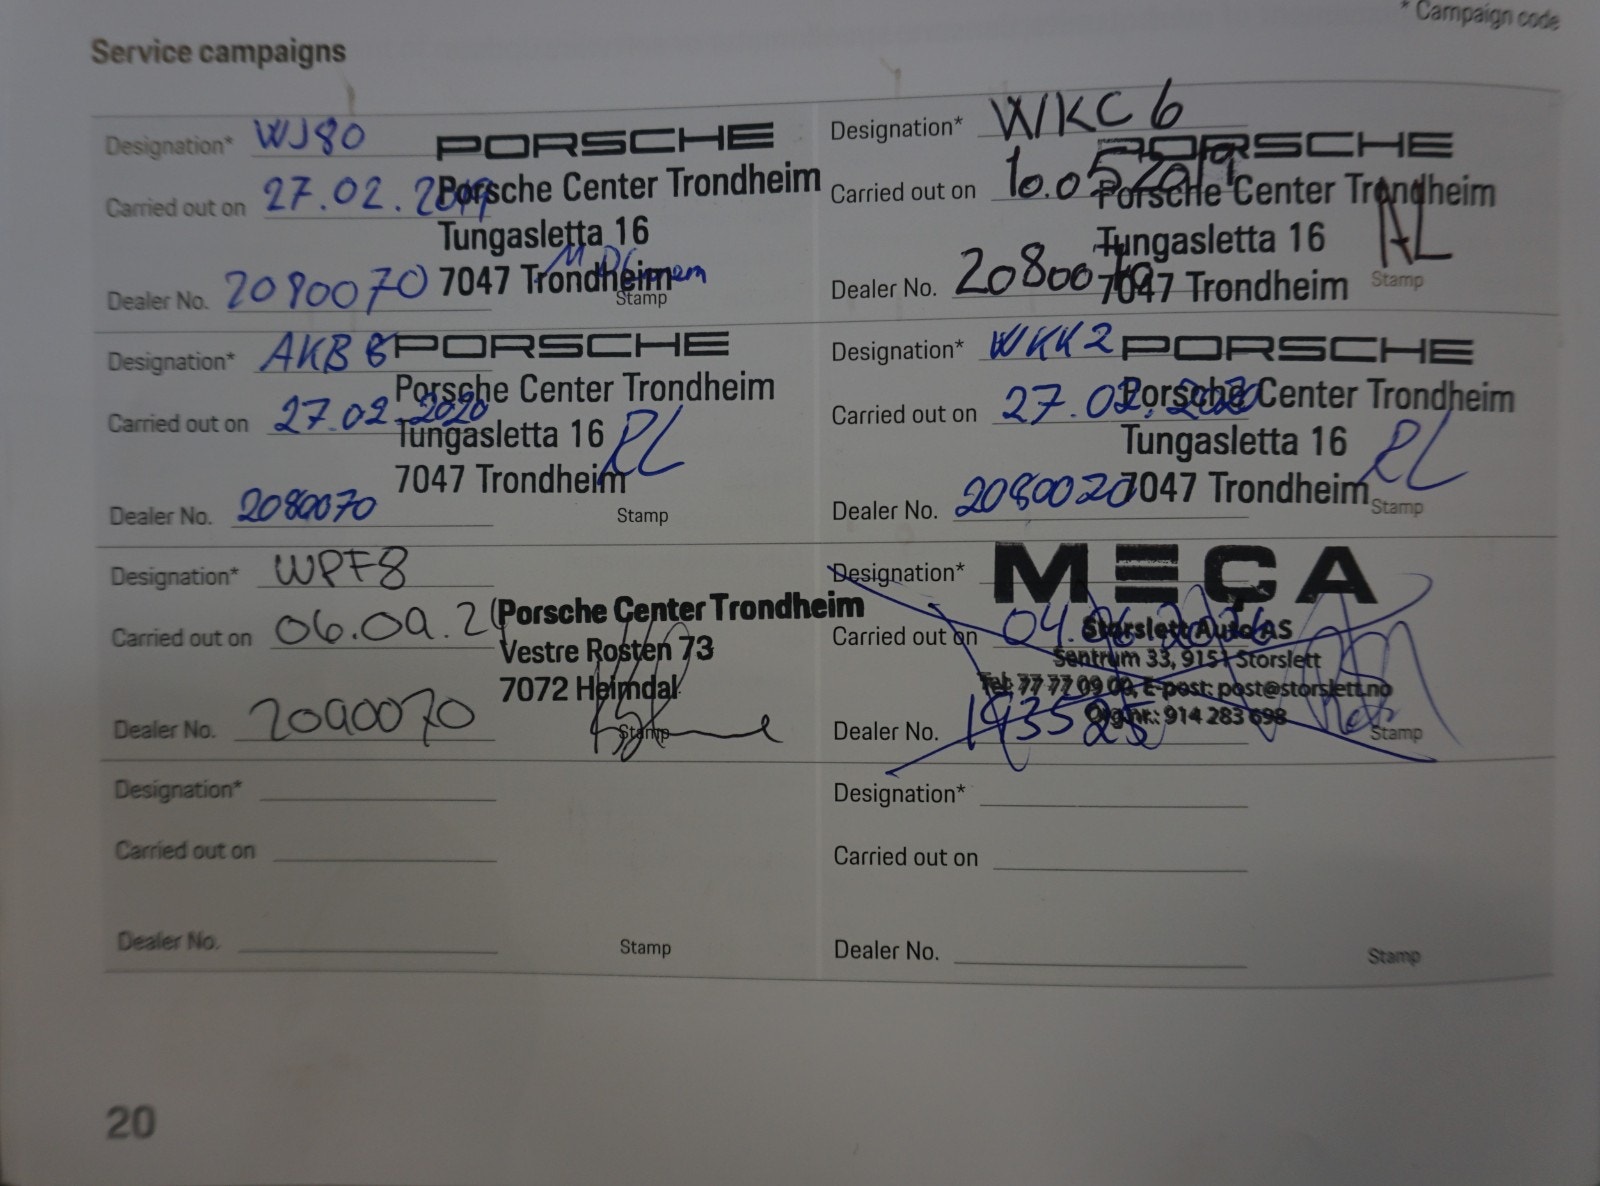 * Campaign code
Service campaigns
Designation* WJ80
PORSCHE
Carried out on 27.02.2019
Porsche Center Trondheim
Tungasletta 16
Dealer No. 2080070
7047 Trondheim
Stamp
Designation* WKC6
PORSCHE
Carried out on 10.05.2019
Porsche Center Trondheim
Tungasletta 16
AL
Dealer No. 2080070
7047 Trondheim
Stamp
Designation* AKB8
PORSCHE
Carried out on 27.02.2020
Porsche Center Trondheim
Tungasletta 16
RL
7047 Trondheim
Dealer No. 2080070
Stamp
Designation* WKK2
PORSCHE
Carried out on 27.02.2020
Porsche Center Trondheim
Tungasletta 16
RL
Dealer No. 2080070
7047 Trondheim
Stamp
Designation* WPF8
Carried out on 06.09.2
Porsche Center Trondheim
Vestre Rosten 73
7072 Heimdal
Dealer No. 2090070
Stamp
Designation*
MECA
Carried out on 04.06.2024
Storslett Auto AS
Sentrum 33, 9151 Storslett
Tel: 77 77 09 00, E-post: post@storslett.no
Org.nr.: 914 283 698
Dealer No. 193525
Stamp
Designation*
Carried out on
Dealer No.
Stamp
Designation*
Carried out on
Dealer No.
Stamp
20